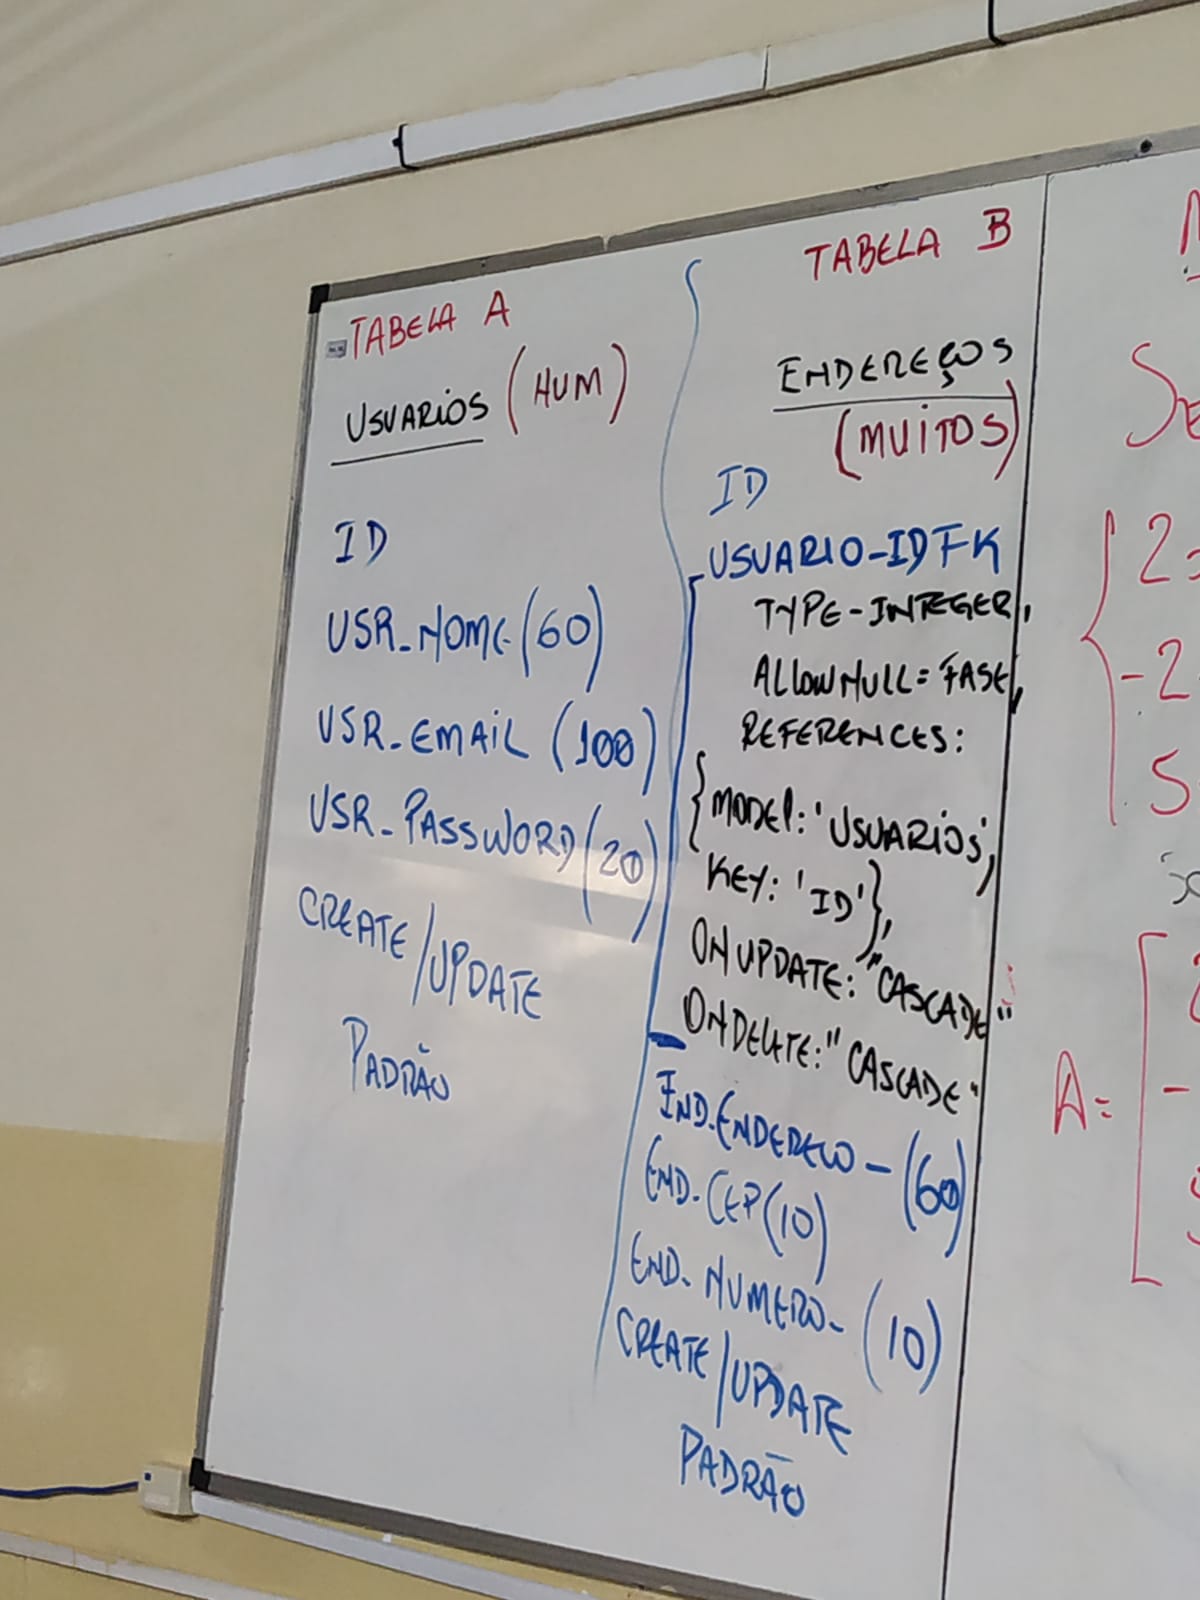 TABELA A
USUARIOS (HUM)
ID
USR_NOME (60)
USR_EMAIL (100)
USR_PASSWORD (20)
CREATE/UPDATE
PADRÃO
TABELA B
ENDEREÇOS
(MUITOS)
ID
USUARIO-ID FK
TYPE-INTEGER,
ALLOWNULL = FASE,
REFERENCES:
{MODEL: 'USUARIOS',
KEY: 'ID'},
ONUPDATE: "CASCADE"
ONDELETE: "CASCADE"
END.ENDEREÇO - (60)
END.CEP (10)
END. NUMERO - (10)
CREATE/UPDATE
PADRÃO
2
-2
5
A =